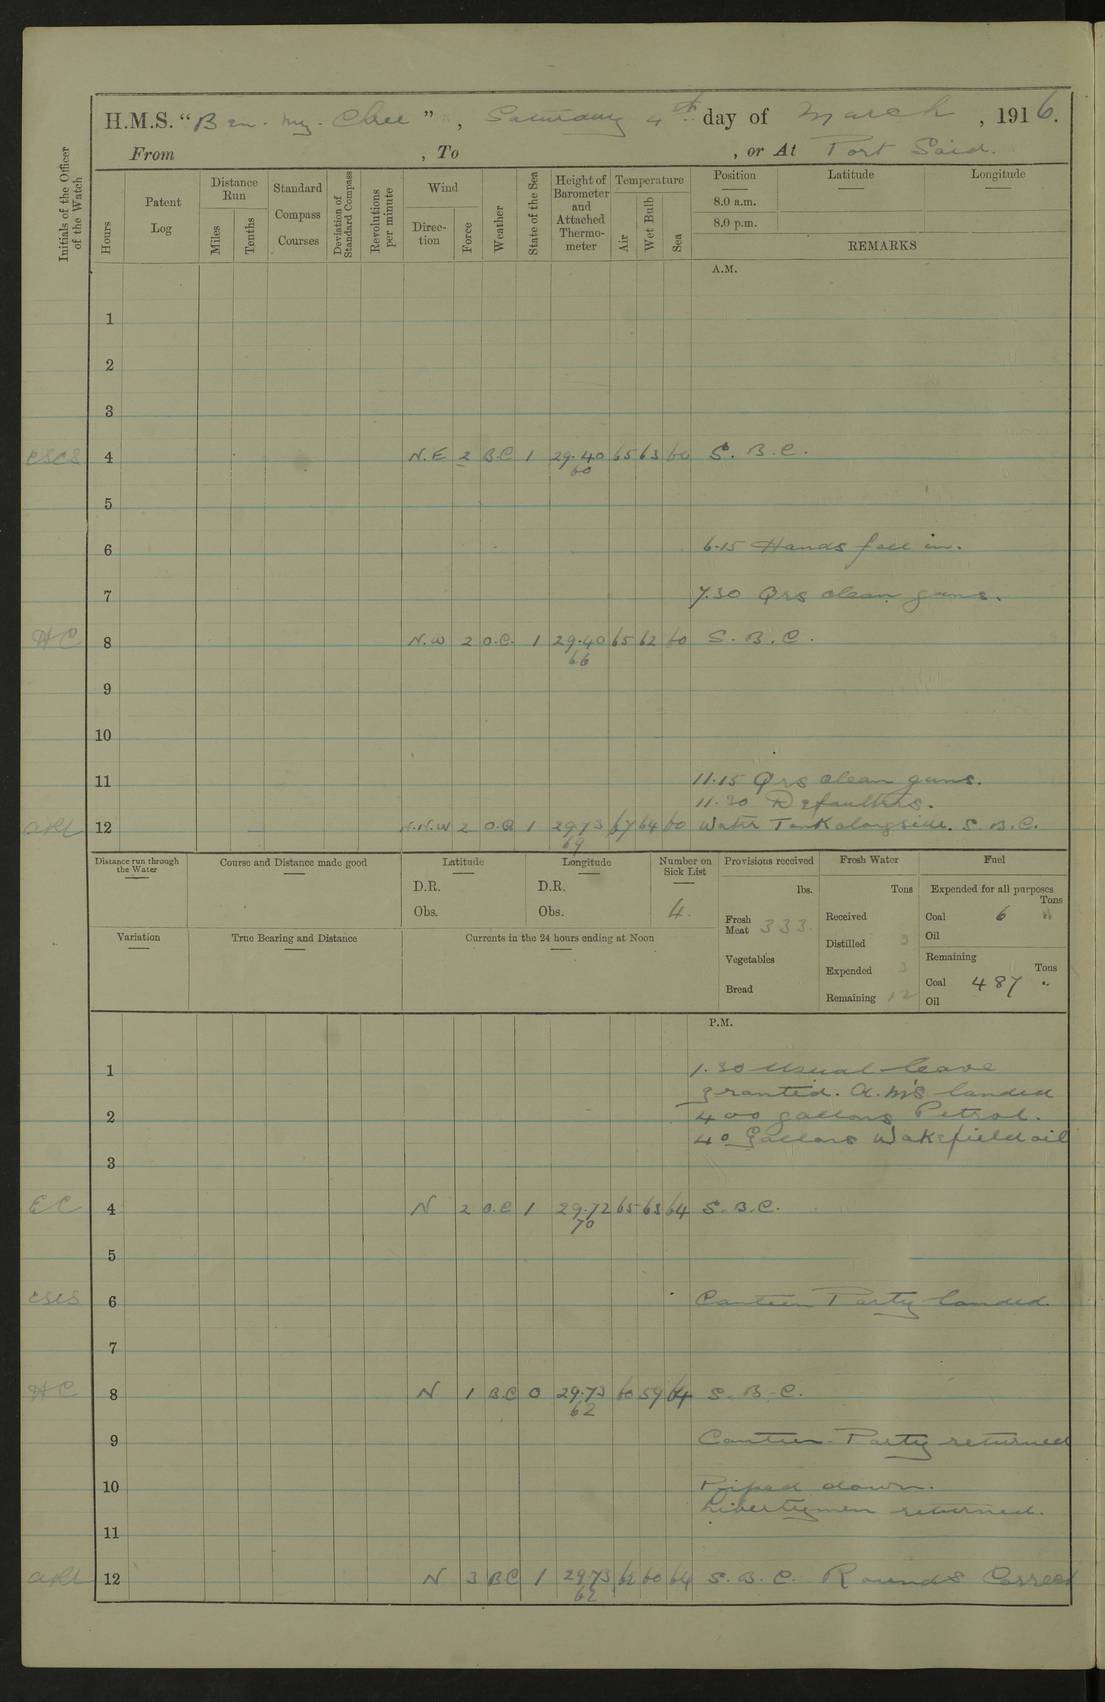 H.M.S. "Ben-my-Chree", Saturday 4th day of March, 1916.
From , To , or At Port Said.
Initials of the Officer of the Watch
Hours
Patent Log
Distance Run
Miles
Tenths
Standard Compass Courses
Deviation of Standard Compass
Revolutions per minute
Wind
Direction
Force
Weather
State of the Sea
Height of Barometer and Attached Thermometer
Temperature
Air
Wet Bulb
Sea
Position Latitude Longitude
8.0 a.m.
8.0 p.m.
REMARKS
A.M.
1
2
3
CSCS 4 N.E 2 B.C 1 29.40 65 63 60 S. B. C.
60
5
6 6.15 Hands fall in.
7 7.30 Qrs clean guns.
HC 8 N.W 2 O.C. 1 29.40 65 62 60 S. B. C.
66
9
10
11 11.15 Qrs clean guns.
11.30 Defaulters.
12 N.N.W 2 O.C 1 29.73 67 64 60 Water Tank alongside. S. B. C.
69
Distance run through the Water
Course and Distance made good
Latitude
D.R.
Obs.
Longitude
D.R.
Obs.
Number on Sick List
4
Provisions received
lbs.
Fresh Meat 333.
Vegetables
Bread
Fresh Water
Tons
Received
Distilled 3
Expended 3
Remaining 12
Fuel
Expended for all purposes
Tons
Coal 6 "
Oil
Remaining
Tons
Coal 487 "
Oil
Variation
True Bearing and Distance
Currents in the 24 hours ending at Noon
P.M.
1 1.30 Usual leave
granted. A.M's landed
2 400 gallons Petrol.
40 Gallons Wakefield oil
3
EC 4 N 2 O.C 1 29.72 65 63 64 S. B. C.
70
5
CSCS 6 Canteen Party landed.
7
HC 8 N 1 B.C 0 29.73 60 59 64 S. B. C.
62
9 Canteen Party returned
10 Piped down.
Libertymen returned.
11
12 N 3 B.C 1 29.73 62 60 64 S. B. C. Rounds Correct
62